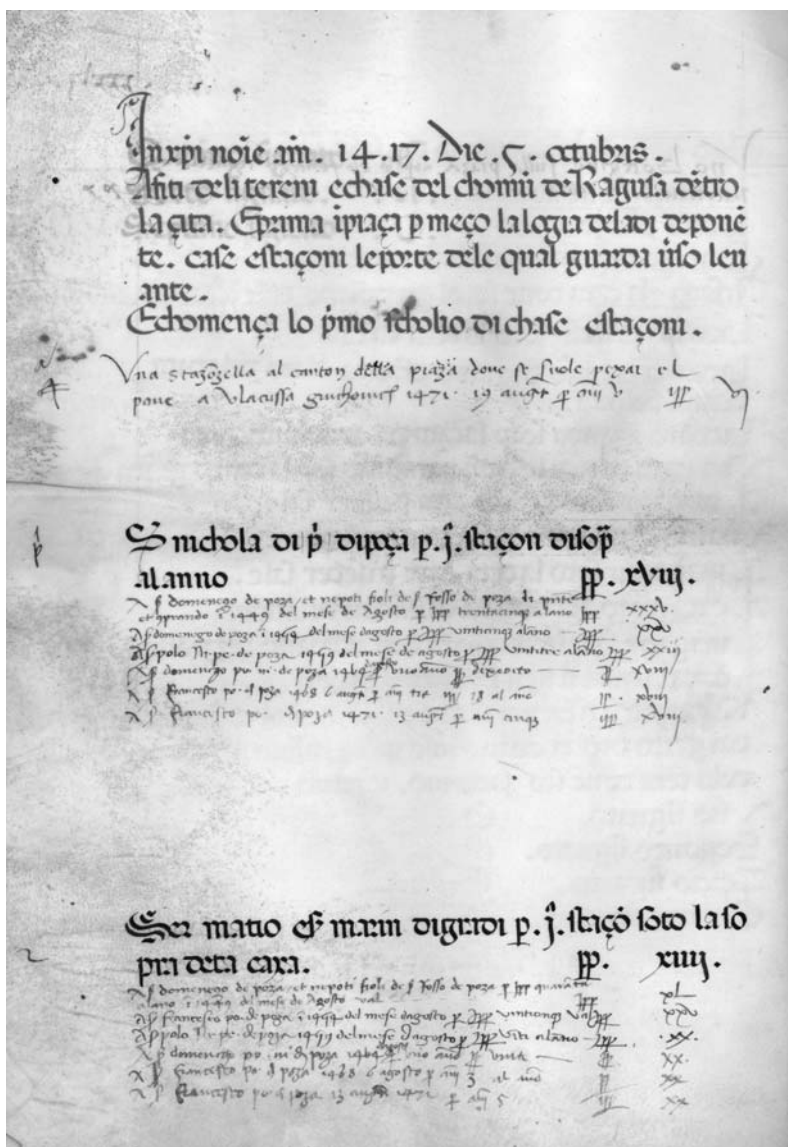 In xpi noie am. 14.17. Die .5. octubris.
Afiti deli tereni echase del chomū de Ragusa dētro
la çita. Eprima ĩpiaça p meço la logia deladi deponē
te. case estaçoni leporte dele qual guarda ũso leu
ante.
Echomença lo p̃mo scholio di chase estaçoni.
Vna stazõzella al canton della piaza doue se suole pexar el
pane a Vlacussa 1471. 19 augt p ani V VI.
S nichola di p̃ dipoça p. j. staçon disop̃
alanno pp. xviii.
A s domenego de poza et nepoti fioli de s Foſſo de poza
1449 del mese de Agosto p ppp trentacinque alano ppp xxxv.
A s domenego de poza i 1454 del mese dagosto p ppp vinticinque alano ppp xxv
A s polo de poza 1459 del mese de agosto p ppp vintitre alano ppp xxiii
A s domenego de poza 1464 xviii
A s Francesco po. d poza 1468 6 augt p ani tre 18 al ano xviii
A s Francisco po. d poza 1471. 13 augt p ani cinque xviii
Ser matio es marin digradi p. j. staçō soto la so
pra deta caxa. pp. xiiii.
A s domenego de poza et nepoti fioli de s Foſſo de poza p ppp quaranta
alano i 1449 del mese de Agosto val ppp xL
A s francesco po. de poza i 1454 del mese dagosto p ppp vinticinque ppp xxv
A s polo de poza 1459 del mese dagosto p ppp vinti alano ppp xx.
A s domenego po. de poza 1464 xx.
A s Francesco po. d poza 1468 6 agosto p ani 3 al ano xx
A s Francesco po d poza 13 augt 1471 p ani 5 xx